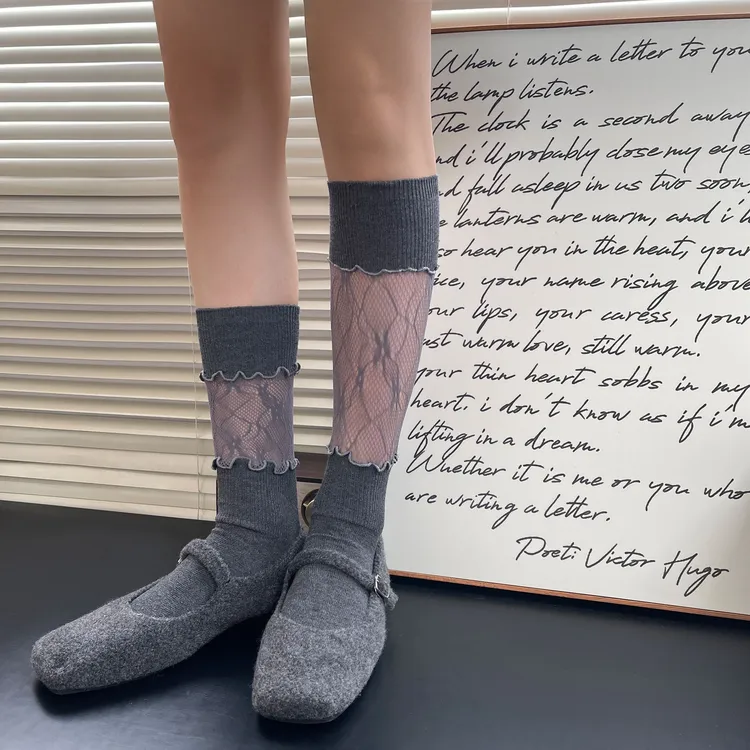 When i write a letter to you
the lamp listens.
The clock is a second away
nd i'll probably close my eye
d fall asleep in us two soon,
e lanterns are warm, and i'll
so hear you in the heat, your
ice, your name rising above
our lips, your caress, your
ust warm love, still warm.
your thin heart sobbs in my
heart. i don't know as if i'm
lifting in a dream.
Wuether it is me or you who
are writing a letter.
Poeti Victor Hugo